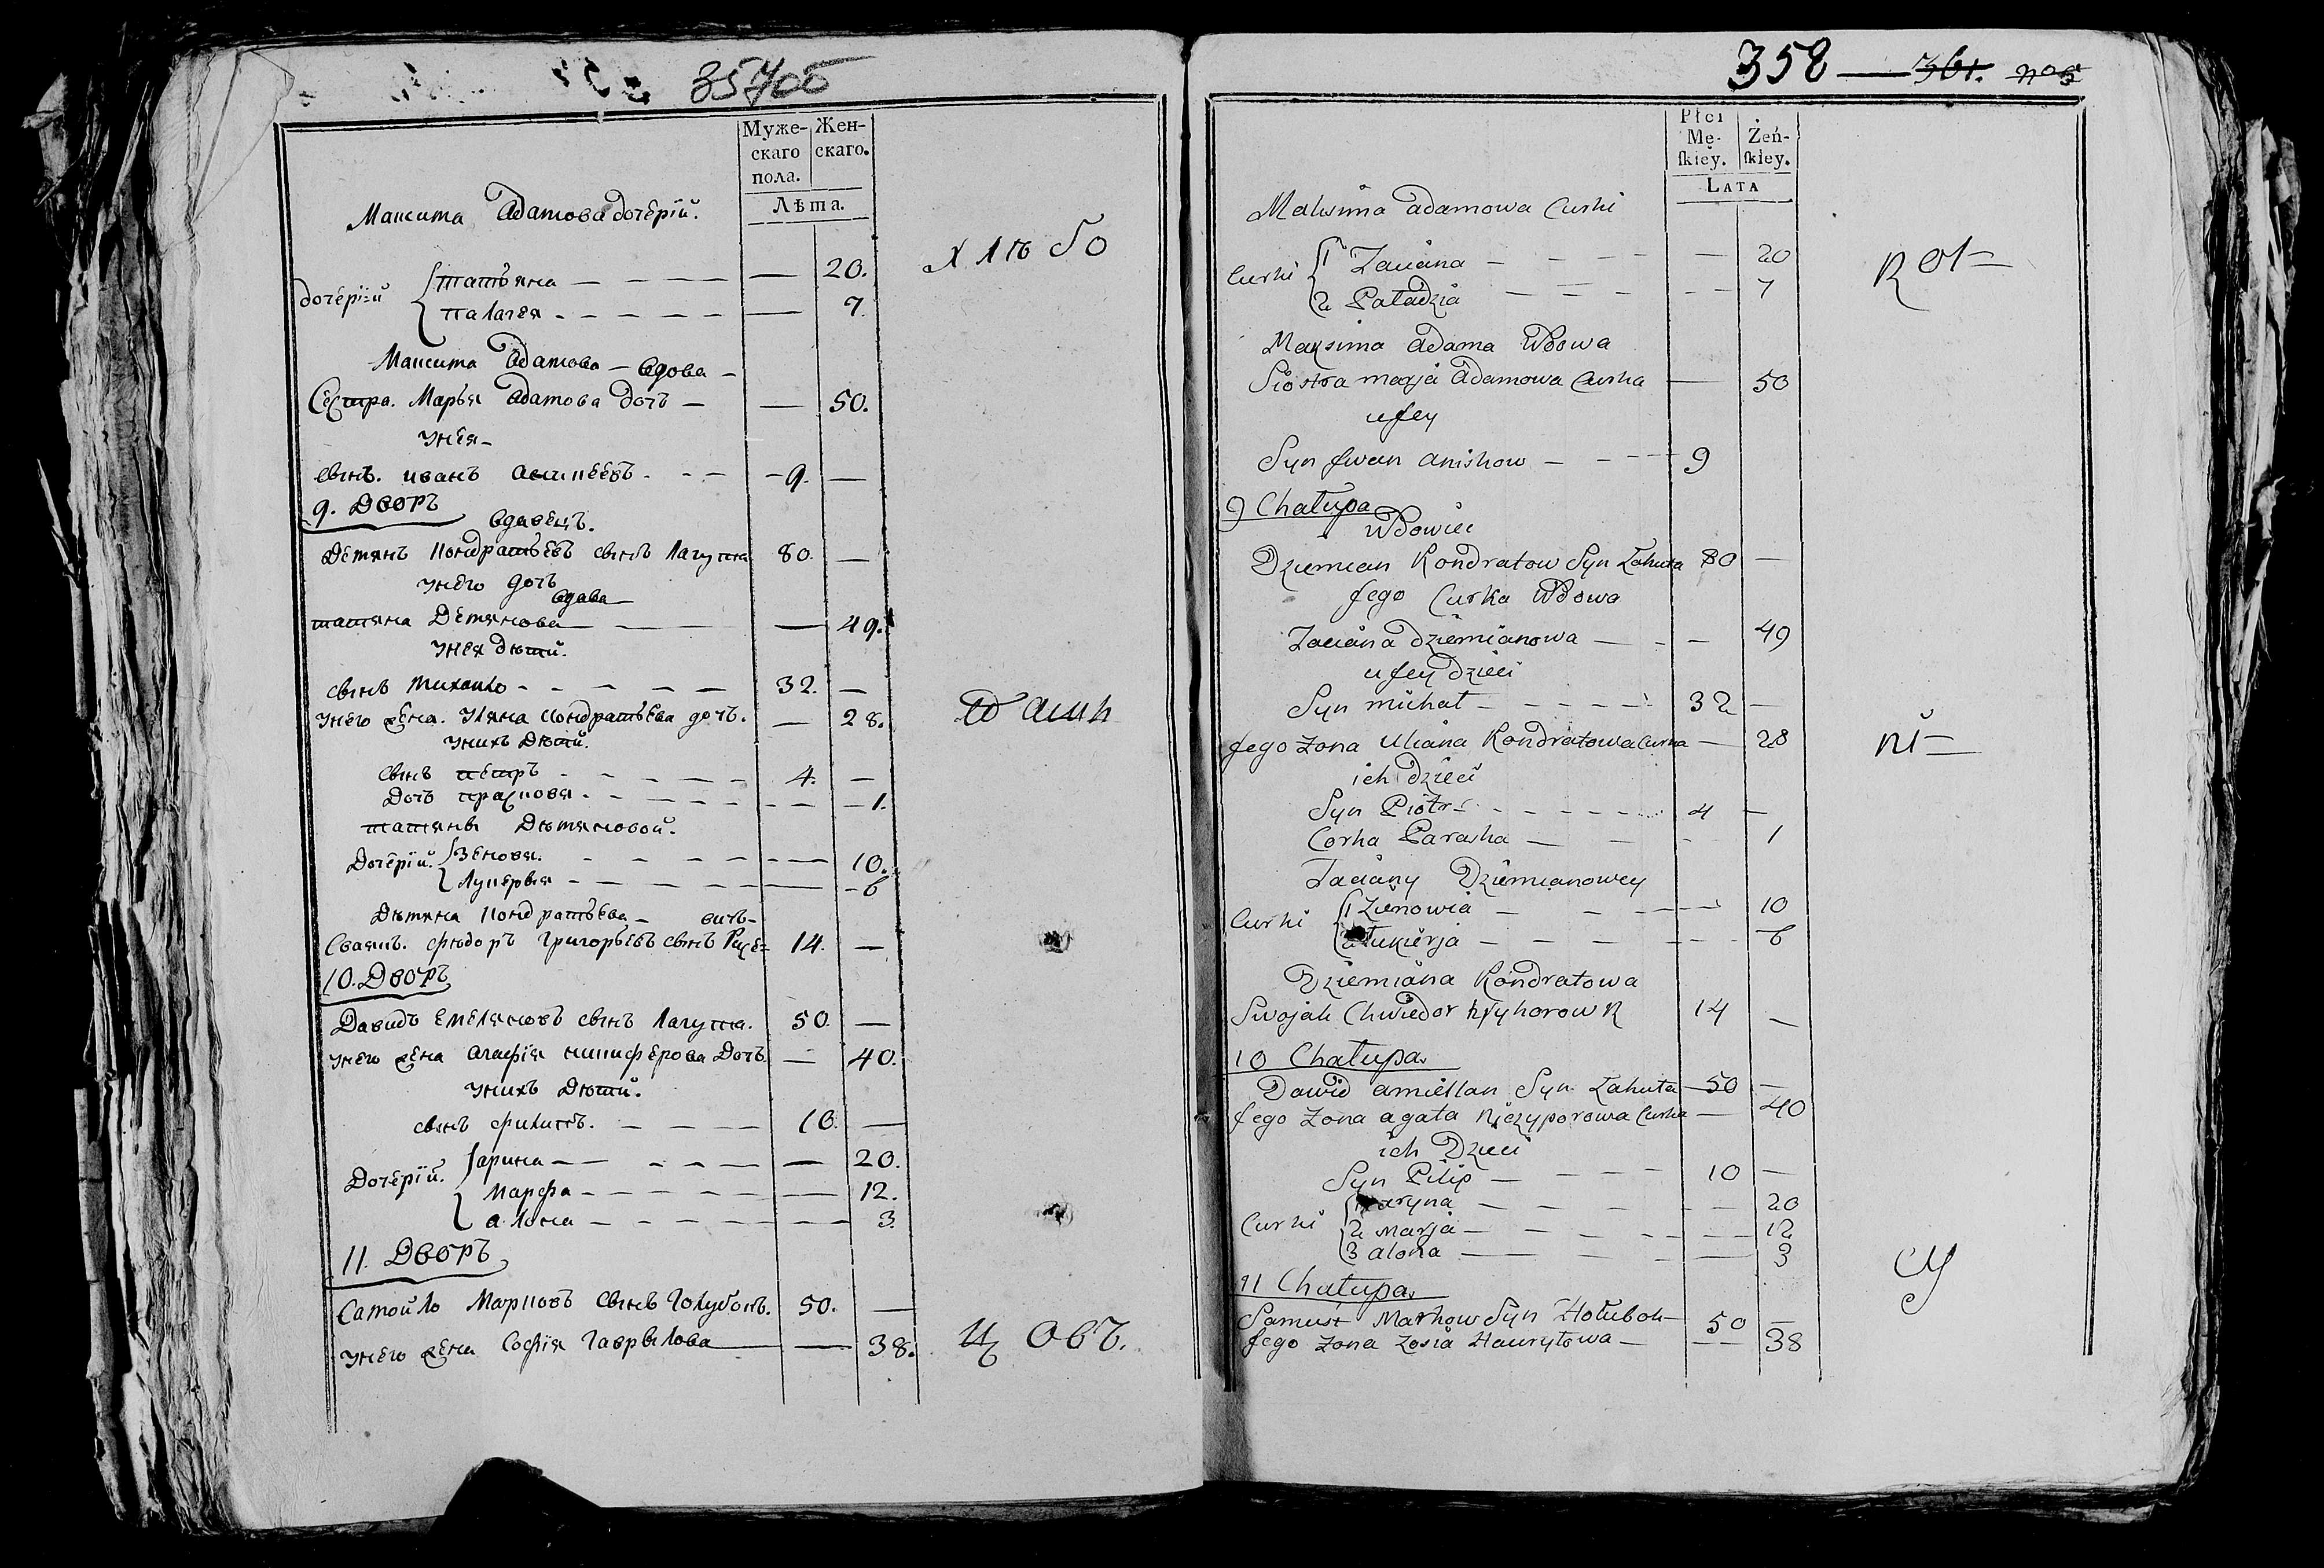 357об
Муже-
скаго
пола.
Жен-
скаго.
Лѣта.
Максима Адамова дочерій.
дочерій
Татьяна — — — — — 20.
Палагея - — — — — — 7.
Максима Адамова — вдова —
Сестра. Марья Адамова дочь — — 50.
унея —
сынъ. иванъ — 9. —
9. Дворъ
вдавецъ.
Демянъ Кондратьевъ сынъ Лагута 80. —
унего дочь
вдава
татяна Демянова — — — 49.
унея дѣтй.
сынъ михайло - - — — — 32. —
унего жена. Уляна Кондратьева дочь. — 28.
унихъ Дѣтй.
сынъ петръ - — — — — 4. —
Дочь прасковя - — — — — — 1.
татяны Дѣмяновой.
Дочерій.
Зеновя. — — — — — 10.
Лукерья — — — — — — 6
Дѣмяна Кондратьева —
Сваякъ. фѣдоръ григорьевъ сынъ 14. —
10. Дворъ
Давидъ Емеляновъ сынъ Лагута. 50. —
унего жена агафія никиферова Дочь. — 40.
унихъ Дѣтй.
сынъ филипъ. — — — — 10. —
Дочерій.
арина — — — — — — 20.
Марфа — — — — — — 12.
алона — — — — — — 3.
11. Дворъ
Самойло Марковъ сынъ Голубокъ. 50. —
унего жена Софія Гаврылова — — 38.
358 — 361.
Płci
Mę-
skiey.
Żeń-
skiey.
LATA
Maksima Adamowa Curki
Curki
1 Taciana — — — — — 20
2 Paładzia — — — — — 7
Maksima Adama Wdowa
Siostra marja Adamowa Curka — 50
u Jey
Syn Jwan Anishow — — — 9
9 Chałupa
Wdowiec
Dziemian Kondratow Syn Łahuta 80 —
Jego Curka Wdowa
Taciana Dziemianowa — — — 49
u Jey Dzieci
Syn michał — — — — — 32 —
Jego Zona Uliana Kondratowa Curka — 28
ich Dzieci
Syn Piotr — — — — — 4 —
Corka Paraska — — — 1
Taciany Dziemianowey
Curki
1 Zienowia — — — — 10
2 Łukierja — — — — — 6
Dziemiana Kondratowa
Swojak Chwiedor Hryhorow R 14 —
10 Chałupa.
Dawid amiellan Syn Łahuta — 50 —
Jego Zona agata Niczyporowa Curka — 40
ich Dzieci
Syn Pilip — — — — 10 —
Curki
1 aryna — — — — — 20
2 Marja — — — — — 12
3 alona — — — — 3
11 Chałupa.
Samuś Markow Syn Hołubok — 50 —
Jego Zona Zosia Hauryłowa — — 38